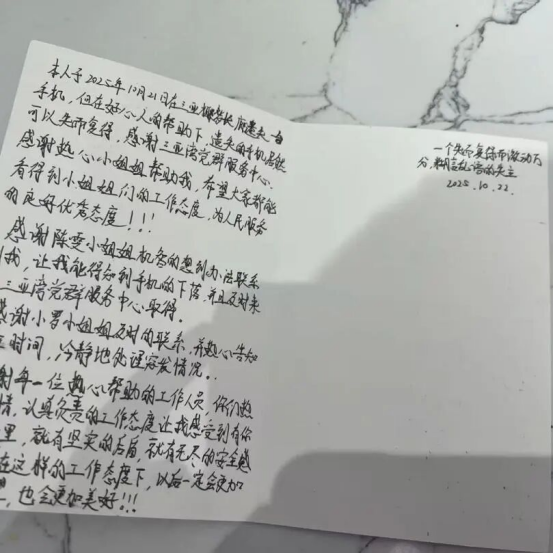 本人于2025年10月21日在三亚椰梦长廊遗失一台
手机，但在好心人的帮助下遗失的手机居然
可以失而复得，感谢三亚湾党群服务中心，
感谢热心小姐姐帮助我，希望大家都能
看得到小姐姐们的工作态度，为人民服务
的良好优秀态度！！！
感谢陈雯小姐姐机智的想到办法联系
到我，让我能得知到手机的下落，并且及时来
三亚湾党群服务中心取得。
感谢小罗小姐姐及时的联系，并热心告知
时间，冷静地处理突发情况..
谢每一位热心帮助的工作人员，你们热
情，认真负责的工作态度让我感受到有你
里，就有坚实的后盾，就有无尽的安全感
在这样的工作态度下，以后一定会更加
，也会更加美好!!!
一个失而复得而激动万
分，语的失主
2025.10.22.